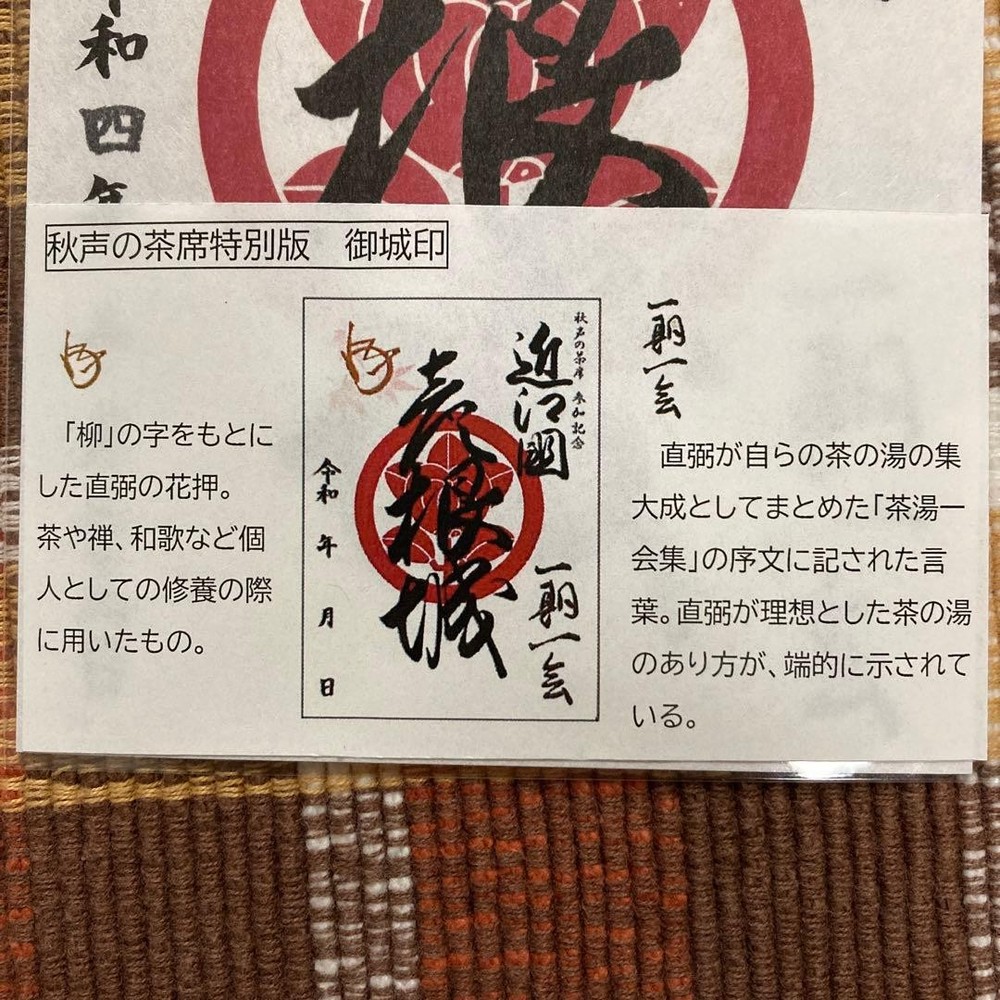 和四年
根
秋声の茶席特別版　御城印
「柳」の字をもとに
した直弼の花押。
茶や禅、和歌など個
人としての修養の際
に用いたもの。
秋声の茶席 参加記念
近江國
彦根城
一期一会
令和　年　月　日
一期一会
直弼が自らの茶の湯の集
大成としてまとめた「茶湯一
会集」の序文に記された言
葉。直弼が理想とした茶の湯
のあり方が、端的に示されて
いる。